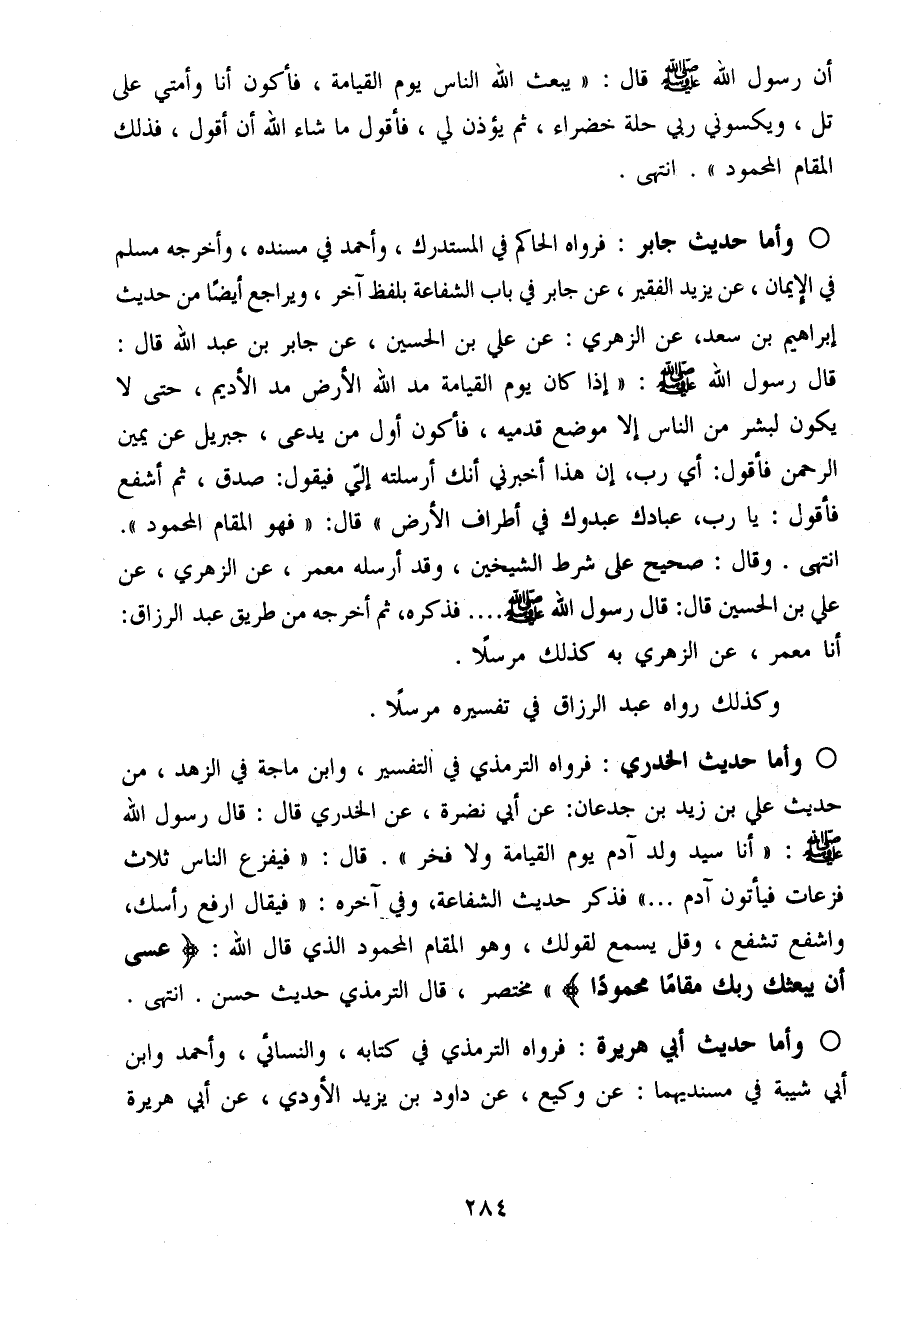 أن رسول الله ﷺ قال : « يبعث الله الناس يوم القيامة ، فأكون أنا وأمتي على
تل ، ويكسوني ربي حلة خضراء ، ثم يؤذن لي ، فأقول ما شاء الله أن أقول ، فذلك
المقام المحمود » . انتهى .
○ وأما حديث جابر : فرواه الحاكم في المستدرك ، وأحمد في مسنده ، وأخرجه مسلم
في الإيمان ، عن يزيد الفقير ، عن جابر في باب الشفاعة بلفظ آخر ، ويراجع أيضًا من حديث
إبراهيم بن سعد، عن الزهري : عن علي بن الحسين ، عن جابر بن عبد الله قال :
قال رسول الله ﷺ : « إذا كان يوم القيامة مد الله الأرض مد الأديم ، حتى لا
يكون لبشر من الناس إلا موضع قدميه ، فأكون أول من يدعى ، جبريل عن يمين
الرحمن فأقول: أي رب، إن هذا أخبرني أنك أرسلته إليّ فيقول: صدق ، ثم أشفع
فأقول : يا رب، عبادك عبدوك في أطراف الأرض » قال: « فهو المقام المحمود ».
انتهى . وقال : صحيح على شرط الشيخين ، وقد أرسله معمر ، عن الزهري ، عن
علي بن الحسين قال: قال رسول الله ﷺ .... فذكره، ثم أخرجه من طريق عبد الرزاق:
أنا معمر ، عن الزهري به كذلك مرسلًا .
وكذلك رواه عبد الرزاق في تفسيره مرسلًا .
○ وأما حديث الخدري : فرواه الترمذي في التفسير ، وابن ماجة في الزهد ، من
حديث علي بن زيد بن جدعان: عن أبي نضرة ، عن الخدري قال : قال رسول الله
ﷺ : « أنا سيد ولد آدم يوم القيامة ولا فخر » . قال : « فيفزع الناس ثلاث
فزعات فيأتون آدم ...» فذكر حديث الشفاعة، وفي آخره : « فيقال ارفع رأسك،
واشفع تشفع ، وقل يسمع لقولك ، وهو المقام المحمود الذي قال الله : ﴿ عسى
أن يبعثك ربك مقامًا محمودًا ﴾ » مختصر ، قال الترمذي حديث حسن . انتهى .
○ وأما حديث أبي هريرة : فرواه الترمذي في كتابه ، والنسائي ، وأحمد وابن
أبي شيبة في مسنديهما : عن وكيع ، عن داود بن يزيد الأودي ، عن أبي هريرة
٢٨٤